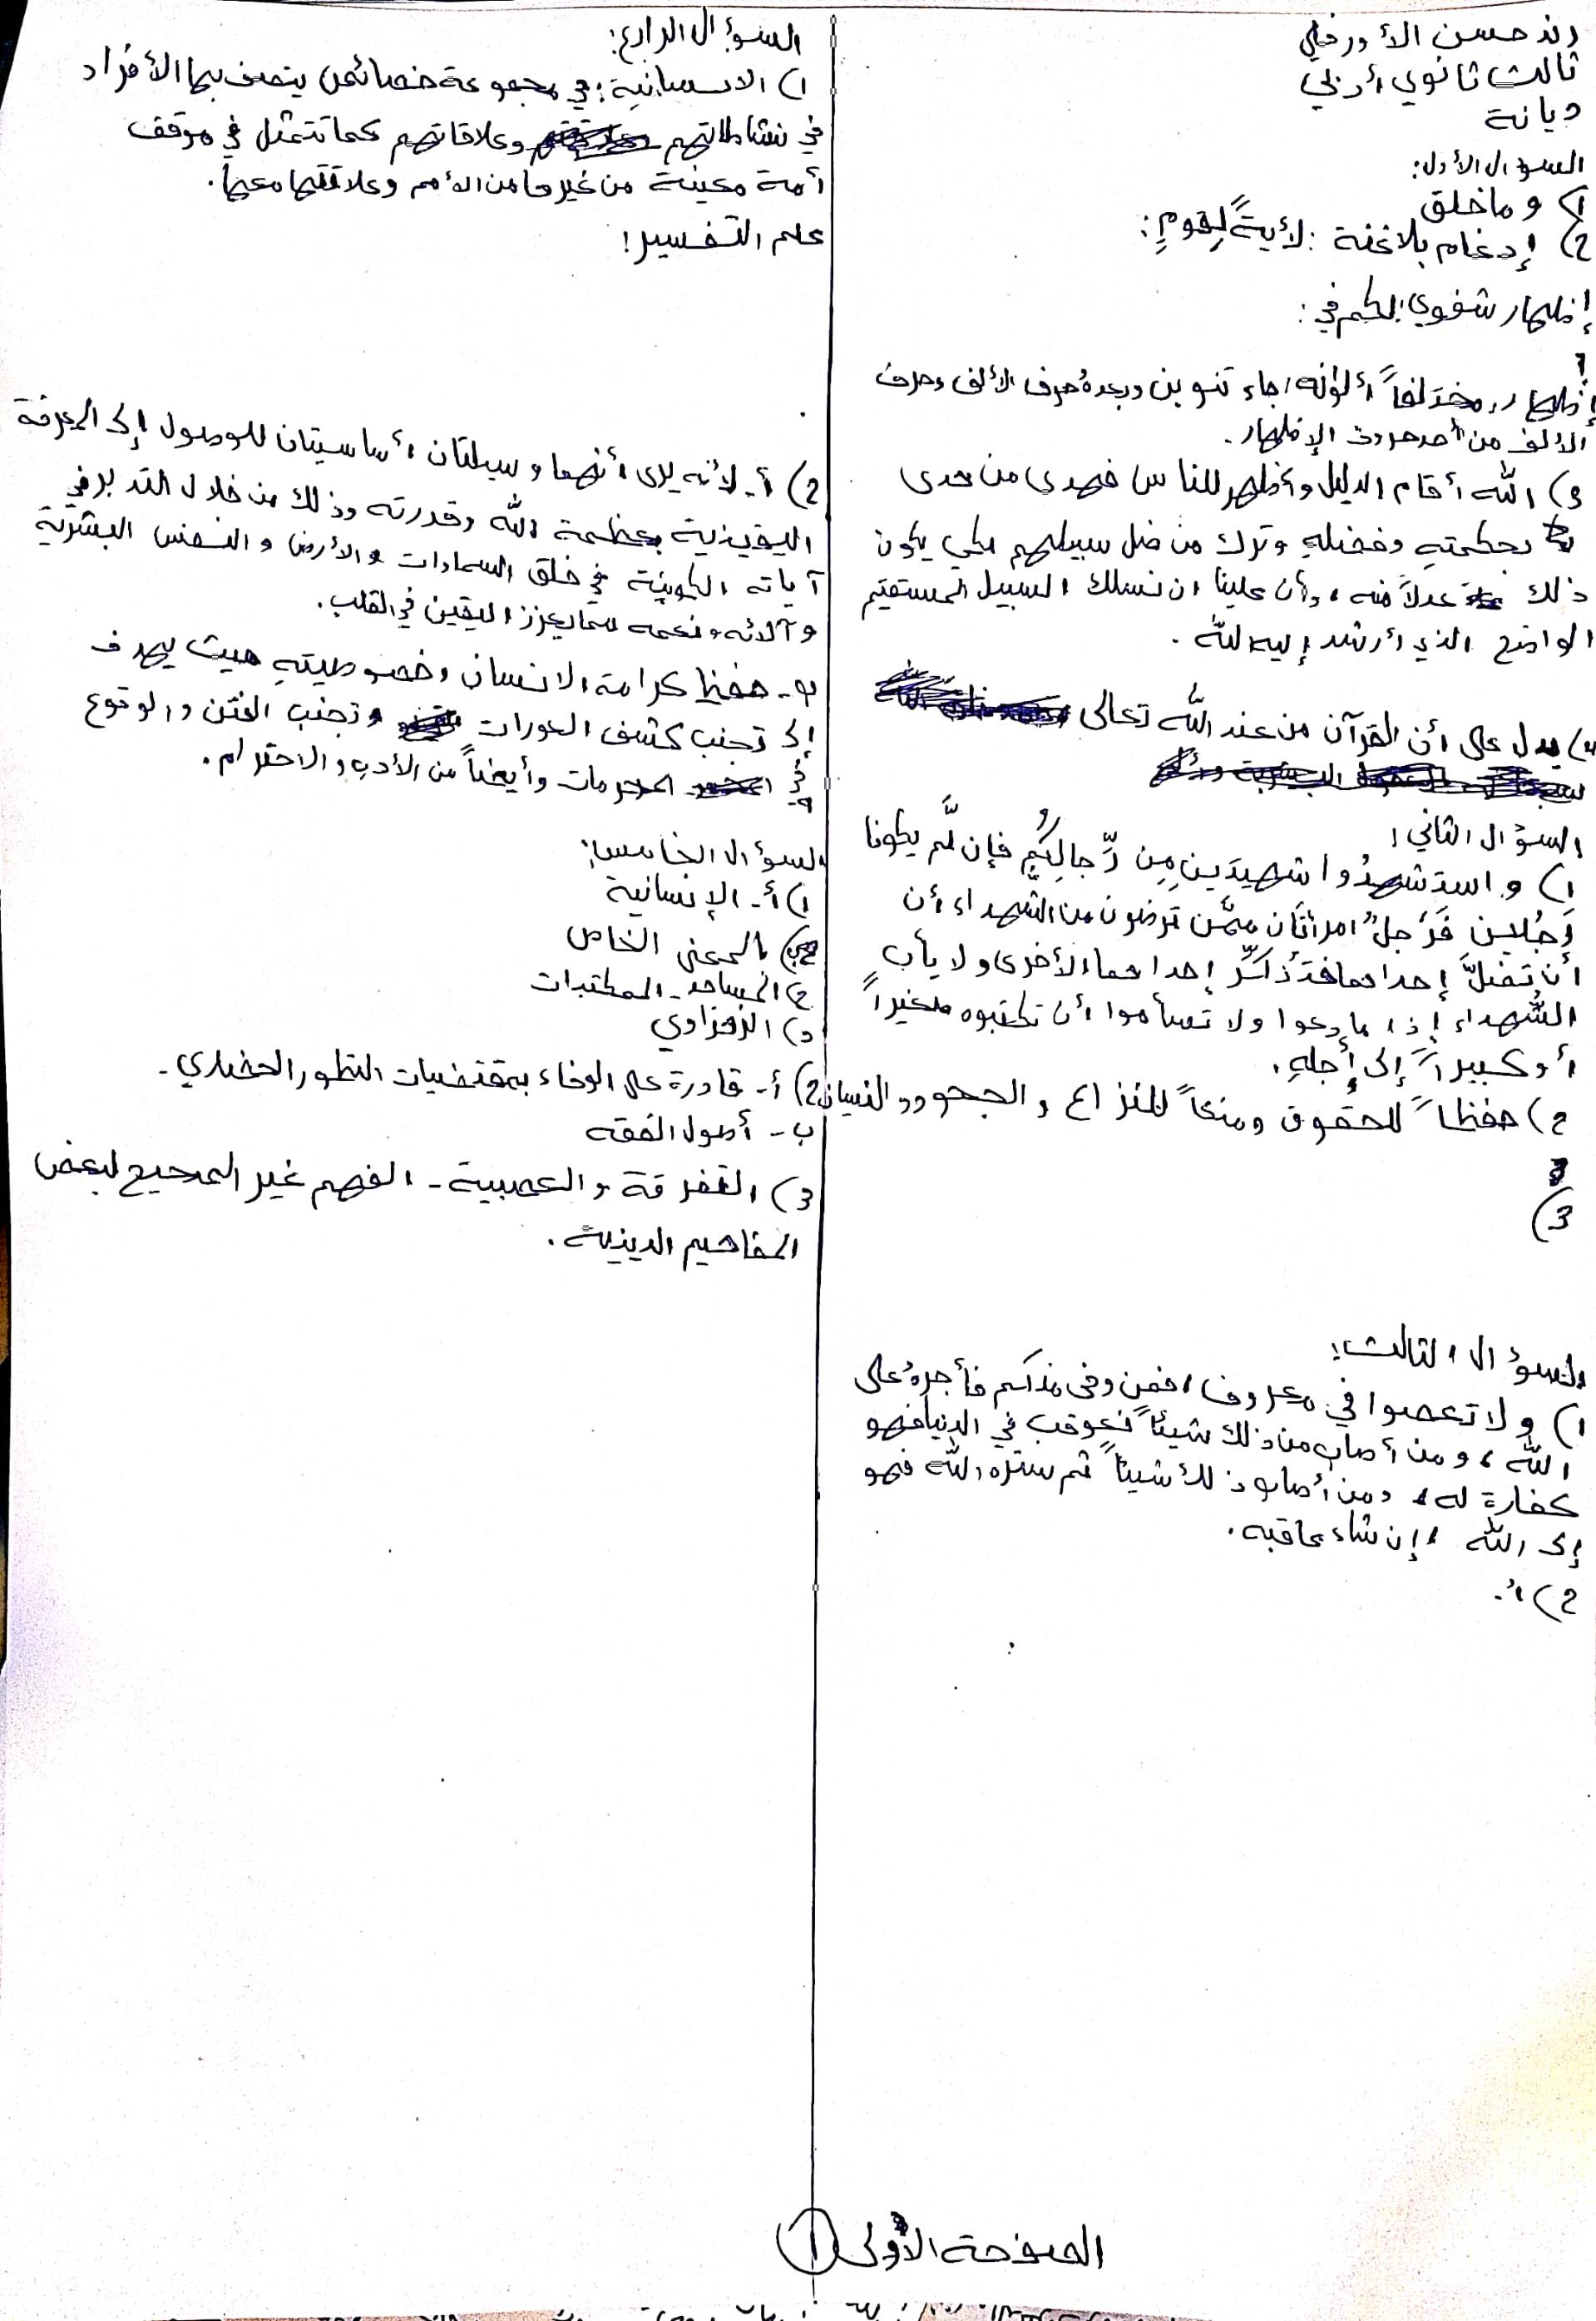 رند حسن الأورفلي
ثالث ثانوي أدبي
ديانة
السؤال الأول:
1) وما خلق
2) إدغام بلا غنة: لأيةً لِقومٍ:
إظهار شفوي: لكم في:
إظهار: مختلفاً ألوانه، جاء تنوين وبعدهُ حرف الألف وحرف
الألف من أحد حروف الإظهار.
3) الله أقام الدليل وأظهر للناس فهدى من هدى
بحكمتهِ وفضلهِ وترك من ضل سبيلهم لكي يكون
ذلك عدلاً منه، وأن علينا ان نسلك السبيل المستقيم
الواضح الذي أرشد إليه الله.
4) يدل على أن القرآن من عند الله تعالى
السؤال الثاني:
1) واستشهدُوا شهيدَينِ مِن رِّجالِكُم فإن لَّم يكونا
رَجُلين فَرَجلٌ امرأتان ممَّن تَرضون من الشهداء أن
أن تضلَّ إحداهما فتُذكِّر إحداهما الأخرى ولا يأب
الشُهداء إذا ما دعوا ولا تسأموا أن تكتبوه صغيراً
أو كبيراً إلى أجلهِ.
2) حفظاً للحقوق ومنعاً للنزاع والجحود والنسيان
3)
السؤال الثالث:
1) ولا تعصوا في معروف، فمن وفى منكم فأجرهُ على
الله، ومن أصاب من ذلك شيئاً فعوقب في الدنيا فهو
كفارة له، ومن أصاب ذلك شيئاً ثم ستره الله فهو
إلى الله، إن شاء عاقبه.
2) أ.
السؤال الرابع:
1) الانسانية: هي مجموعة خصائص يتصف بها الأفراد
في نشاطاتهم وعلاقاتهم كما تتمثل في موقف
أمة معينة من غيرها من الأمم وعلاقتها معها.
علم التفسير:
2) أ- لأنه يرى أنهما وسيلتان أساسيتان للوصول إلى المعرفة
اليقينية بعظمة الله وقدرته وذلك من خلال التدبر في
آياته الكونية في خلق السماوات والأرض والنفس البشرية
وآلائه ونعمه مما يعزز اليقين في القلب.
ب- حفظ كرامة الانسان وخصوصيتهِ حيث يهدف
إلى تجنب كشف العورات وتجنب الفتن والوقوع
في المحرمات وأيضاً من الأدب والاحترام.
السؤال الخامس:
1) أ- الإنسانية
ب) بالمعنى الخاص
ج) المساجد - المكتبات
د) الزهراوي
2) أ- قادرة على الوفاء بمقتضيات التطور الحضاري.
ب- أصول الفقه
3) التفرقة والعصبية - الفهم غير الصحيح لبعض
المفاهيم الدينية.
الصفحة الأولى 1